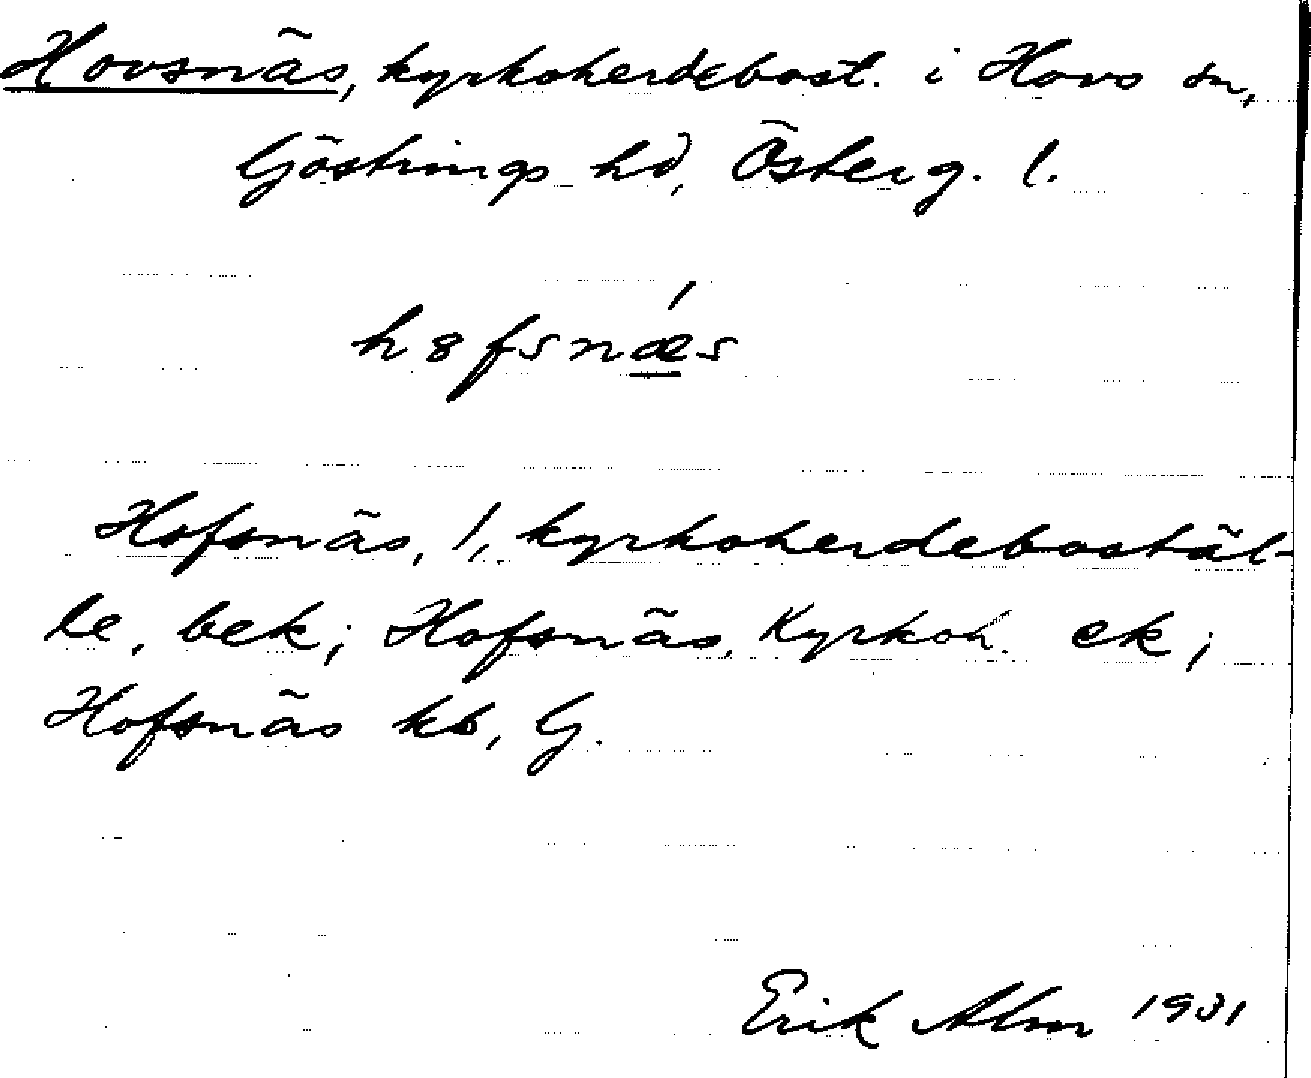 Hovsnäs, kyrkoherdebost. i Hovs sn,
Göstrings hd, Österg. l.
h8fsnǽs
Hofsnäs, 1, kyrkoherdebostäl-
le, bek; Hofsnäs, Kyrkoh. ek;
Hofsnäs kb, G.
Erik Alm 1931